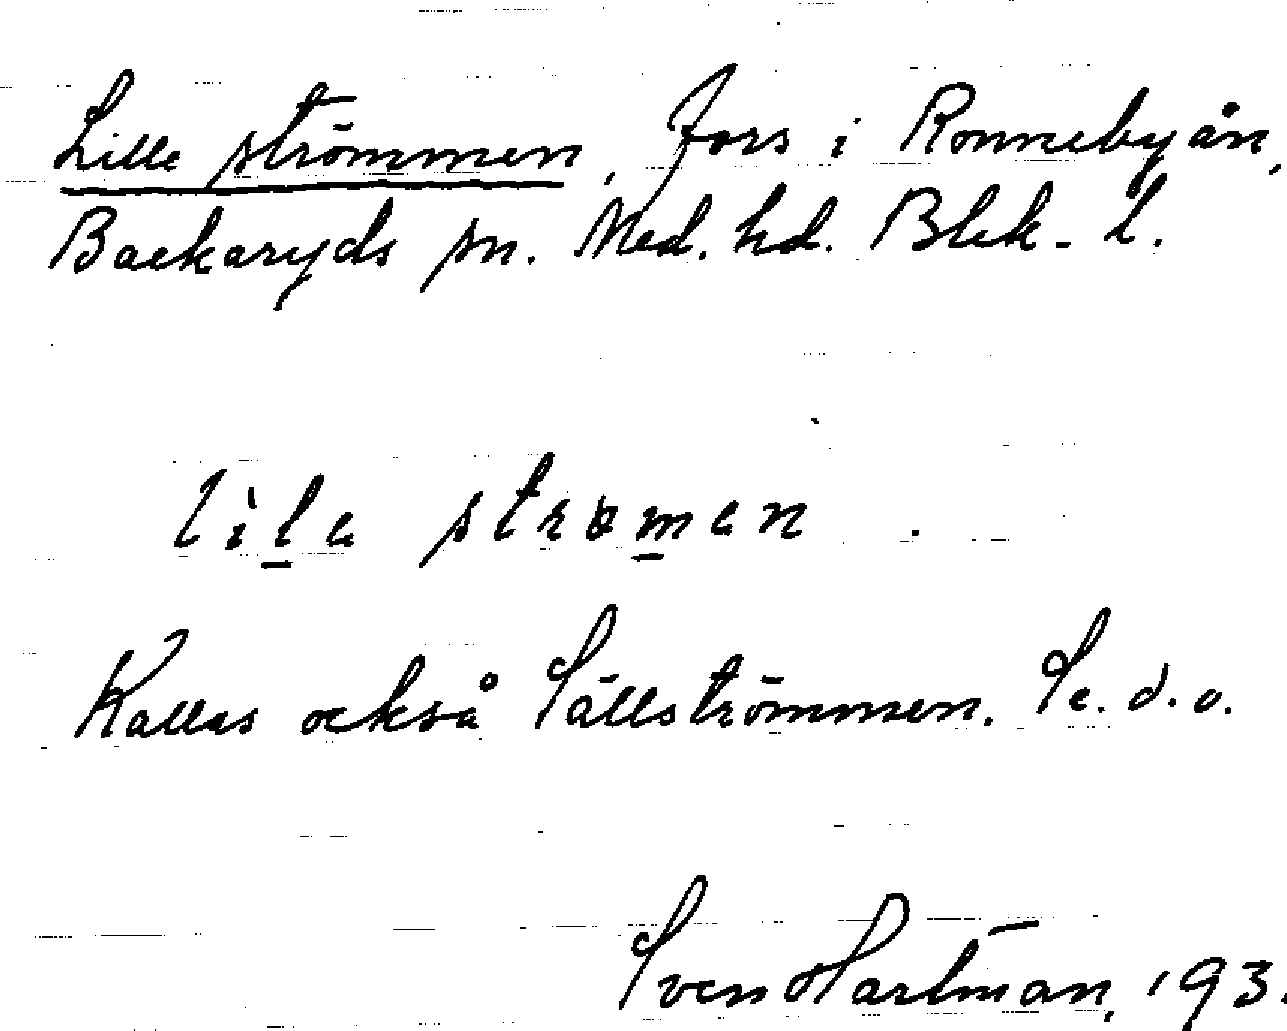 Lille strömmen, fors i Ronnebyån,
Backaryds sn. Med. hd. Blek. l.
lìl̲e strøm̲en .
Kallas också Sällströmmen. Se. d. o.
Sven Hartman, 193